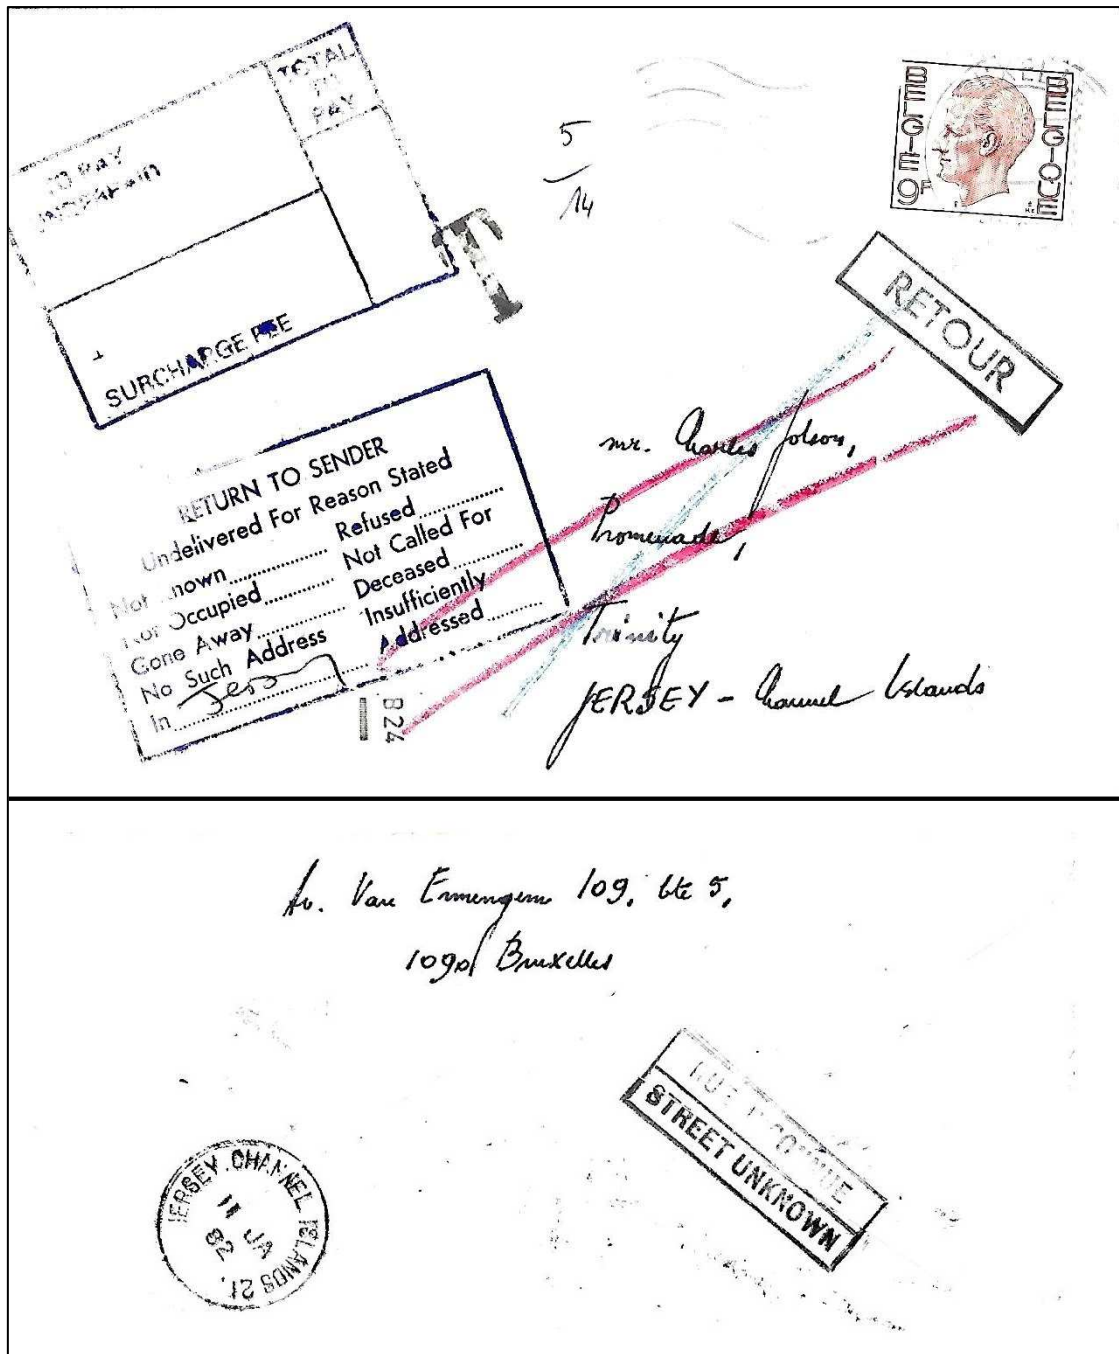 TOTAL
TO
PAY
TO PAY
UNDERPAID
SURCHARGE FEE
T
5
14
BELGIE 9F
BELGIQUE
RETOUR
RETURN TO SENDER
Undelivered For Reason Stated
Not Known............ Refused............
Not Occupied............ Not Called For
Gone Away............ Deceased............
No Such Address Insufficiently
In............ Addressed............
B24
mr. Charles Jolson,
Promenade,
Trinity
JERSEY - Channel Islands
Av. Van Ermengem 109, bte 5,
1090 Bruxelles
RUE INCONNUE
STREET UNKNOWN
JERSEY. CHANNEL ISLANDS 21.
11 JA
82